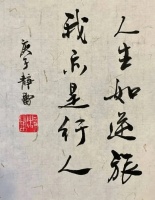 人生如逆旅
我亦是行人
庚子静雷